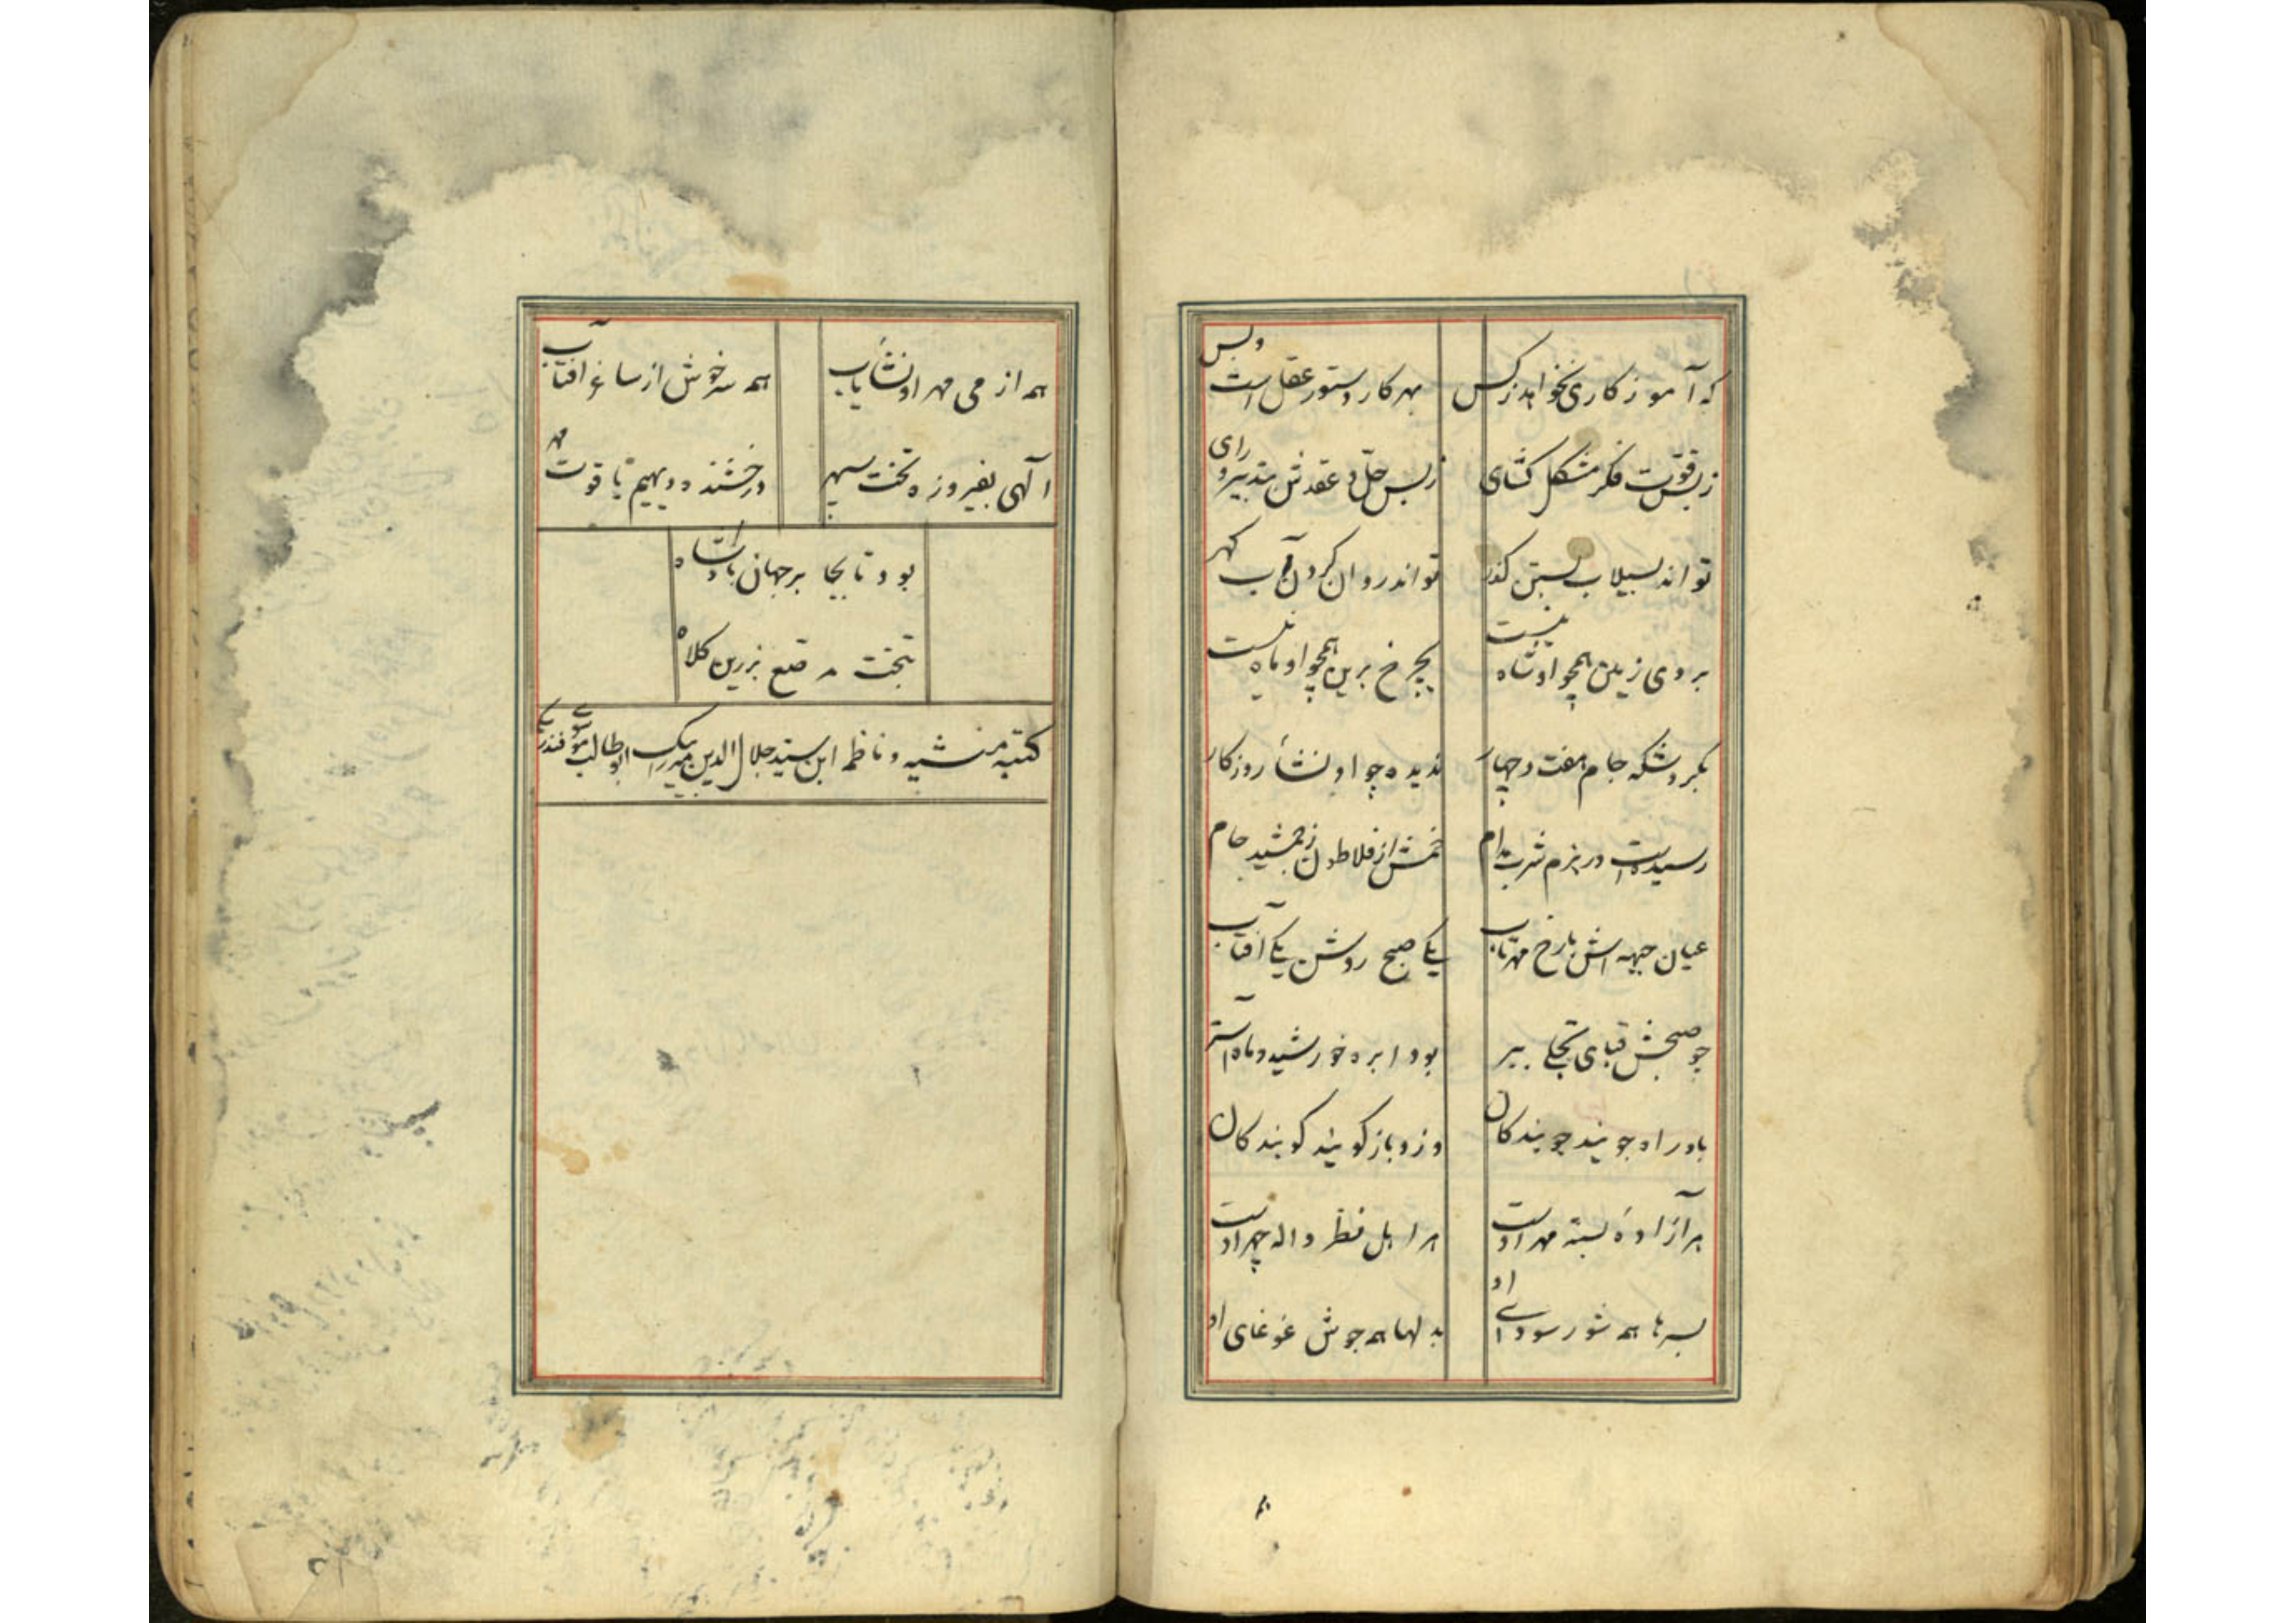 که آموزکاری نخواهد ز کس بهر کار دستور عقل است و بس
ز بس قوّت فکر مشکل کشای ز بس حلّ و عقدش بتدبیر و رای
تواند بسیلاب بستن گذر تواند روان کردن آب کهر
بروی زمین همچو او شاه نیست بچرخ برین همچو او ماه نیست
بکرد شکه جام هفت و چهار ندیده چو او نشأ روزکار
رسیدست در بزم شرب مدام خمش از فلاطون ز جمشید جام
عیان جبهه اش با رخ مهرتاب یکی صبح روشن یکی آفتاب
چو صبحش قبای تجلی ببر بود ابره خورشید و ماه آستر
باو راه جویند جویندکان وزو باز کویند کویندکان
هر آزادهٔ بستهٔ مهر اوست هر اهل نظر واله چهر اوست
بسرها همه شور سودای او بدلها همه جوش غوغای او
همه از می مهر او نشأیاب همه سرخوش از ساغر آفتاب
آلهی بفیروزه تخت سپهر درخشنده دیهیم یاقوت مهر
بود تا بجا بر جهان پادشاه
بتخت مرصع بزرین کلاه
کتبه منشیه و ناظمه ابن سید جلال الدین میرک ابوطالب موسوی فندرسکی